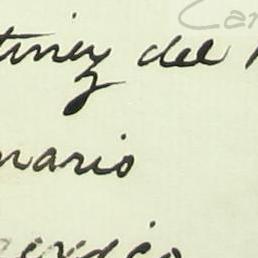 Car
tinez del
nario